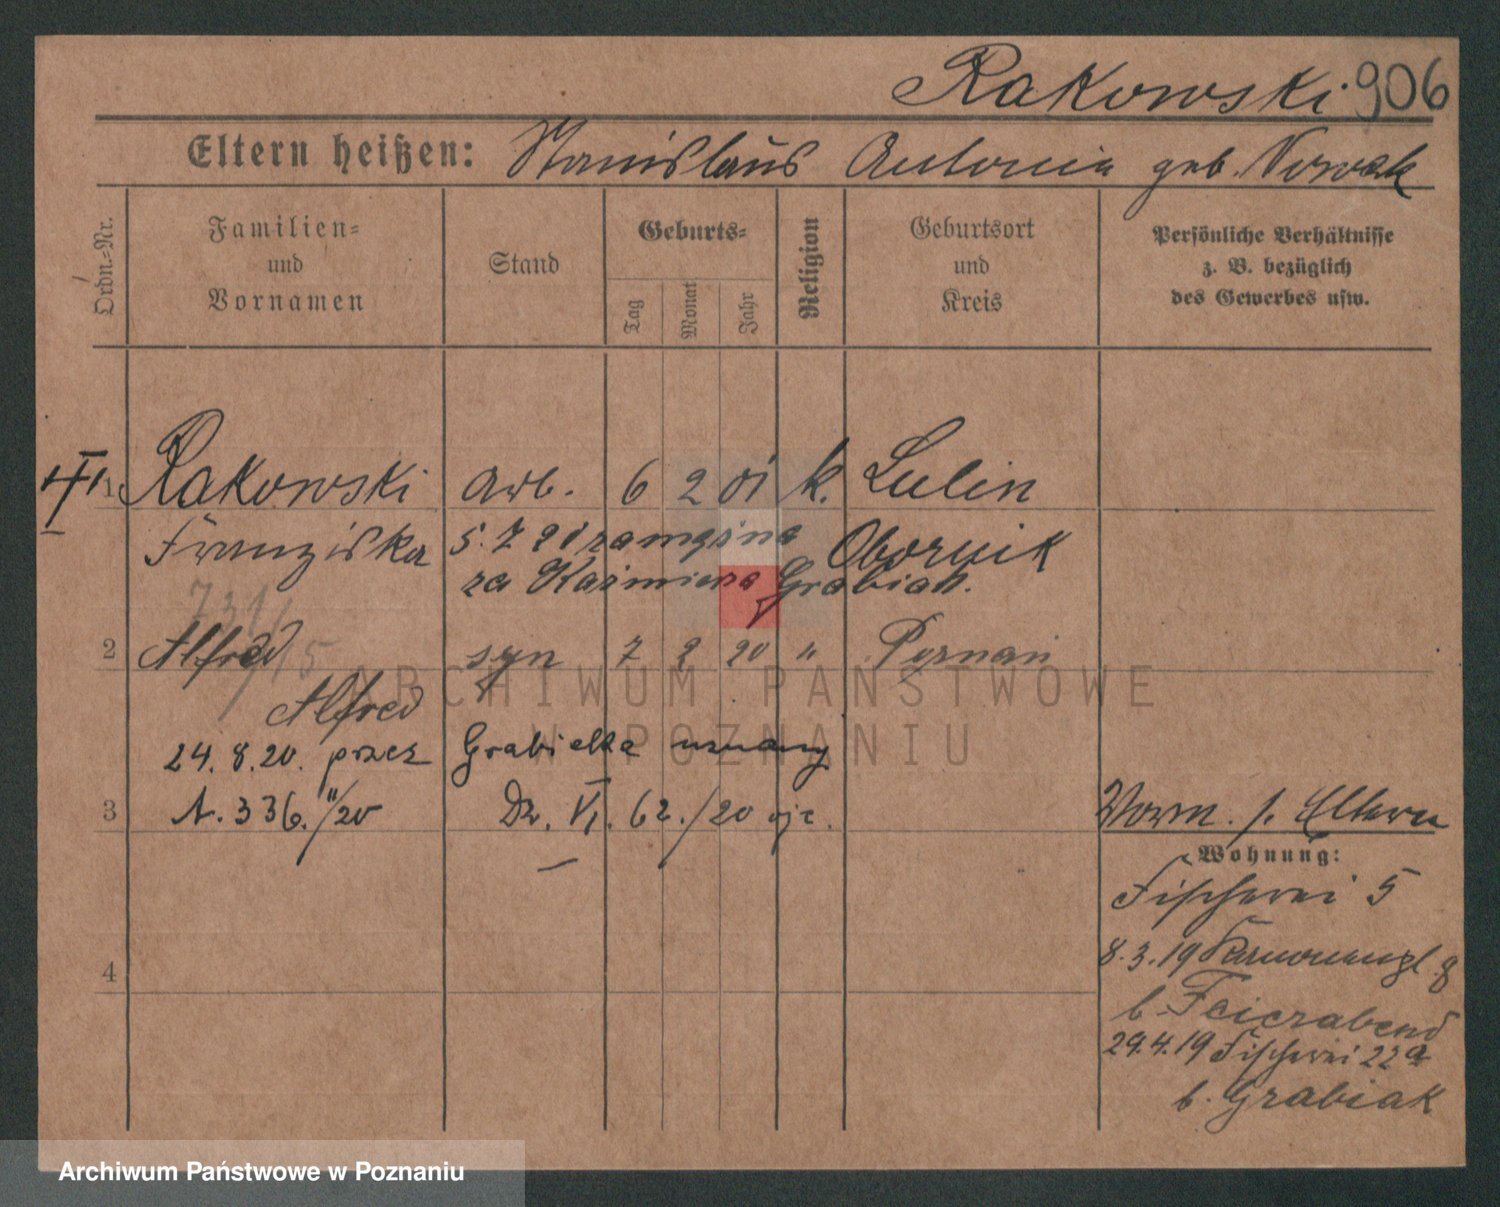 Rakowski 906
Eltern heißen: Stanislaus Antonia geb. Nowak
Ordn.-Nr.
Familien-
und
Vornamen
Stand
Geburts-
Tag
Monat
Jahr
Religion
Geburtsort
und
Kreis
Persönliche Verhältnisse
z. B. bezüglich
des Gewerbes usw.
1 Rakowski Arb. 6 2 01 k. Lulin
Franziska 5. 7 21 zamężna Obornik
za Kazimierza Grabiak.
731/15
2 Alfred syn 7 2 20 " Poznań
Alfred
24. 8. 20. przez Grabiaka uznany
3 A. 336."/20 Dz. VI. 62./20 ojc.
Worm. s. Eltern
Wohnung:
Fischerei 5
8.3.19 Kanonenpl. 8
4
b. Feierabend
29.4.19 Fischerei 22a
b. Grabiak
ARCHIWUM PAŃSTWOWE
W POZNANIU
Archiwum Państwowe w Poznaniu